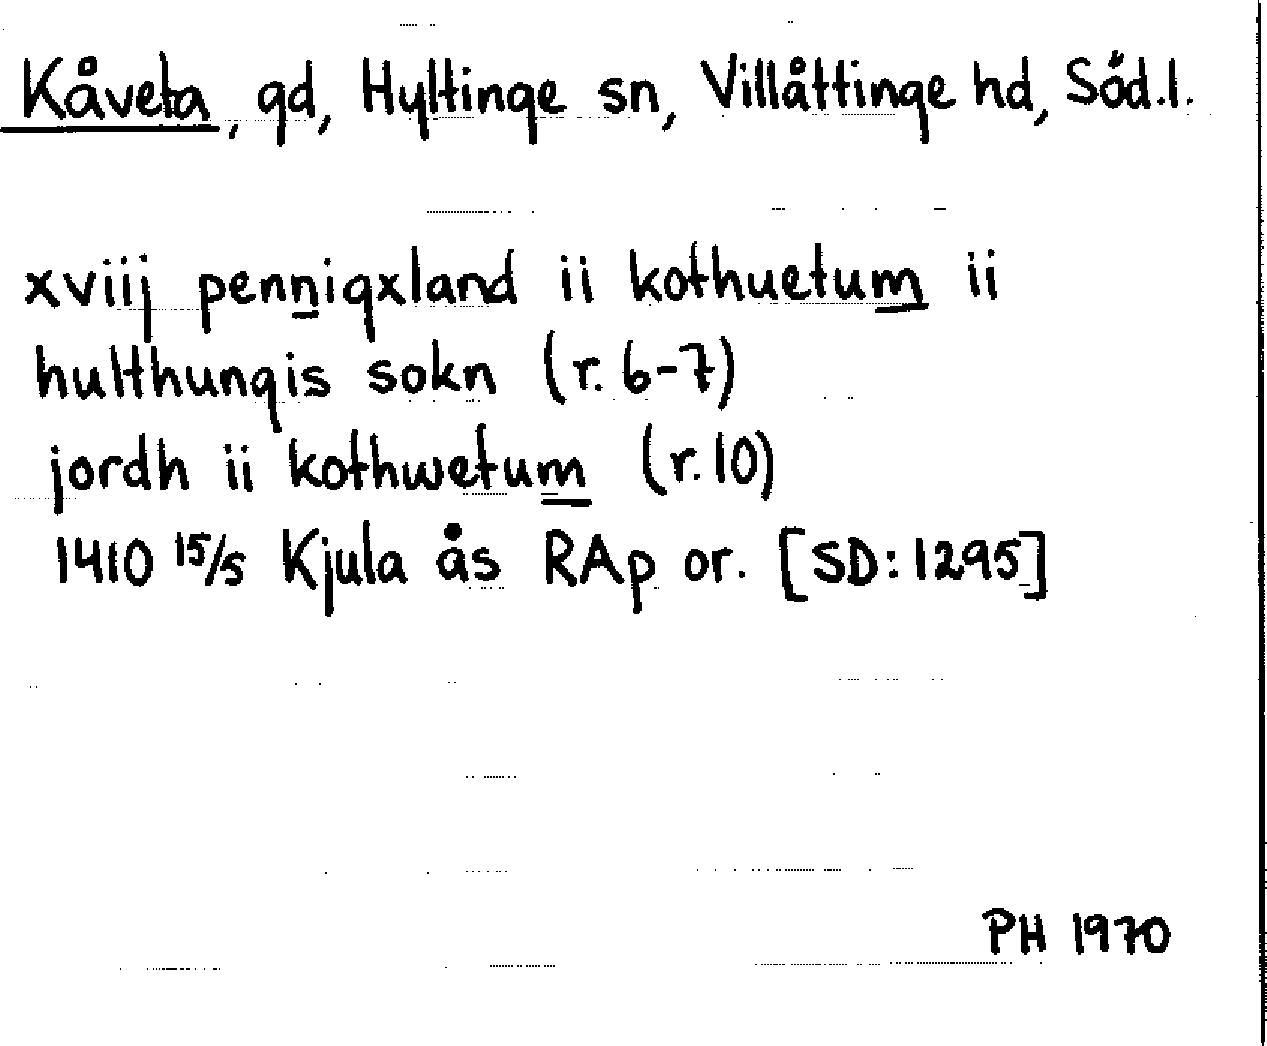 Kåveta, gd, Hyltinge sn, Villåttinge hd, Söd.l.
xviij penningxland ii kothuetum ii
hulthungis sokn (r. 6-7)
jordh ii kothwetum (r. 10)
1410 15/5 Kjula ås RAp or. [SD: 1295]
PH 1970